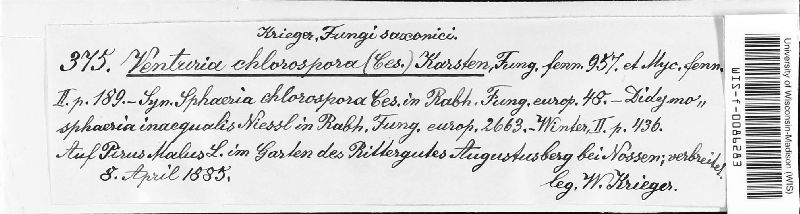 Krieger, Fungi saxonici.
375. Venturia chlorospora (Ces.) Karsten, Fung. fenn. 957. et Myc. fenn.
II. p. 189. – Syn. Sphaeria chlorospora Ces. in Rabh. Fung. europ. 48. – Didymo„
sphaeria inaequalis Niessl in Rabh. Fung. europ. 2663. – Winter, II. p. 436.
Auf Pirus Malus L. im Garten des Rittergutes Augustusberg bei Nossen; verbreitet.
8. April 1885.
leg. W. Krieger.
University of Wisconsin-Madison (WIS)
WIS-f-0086283